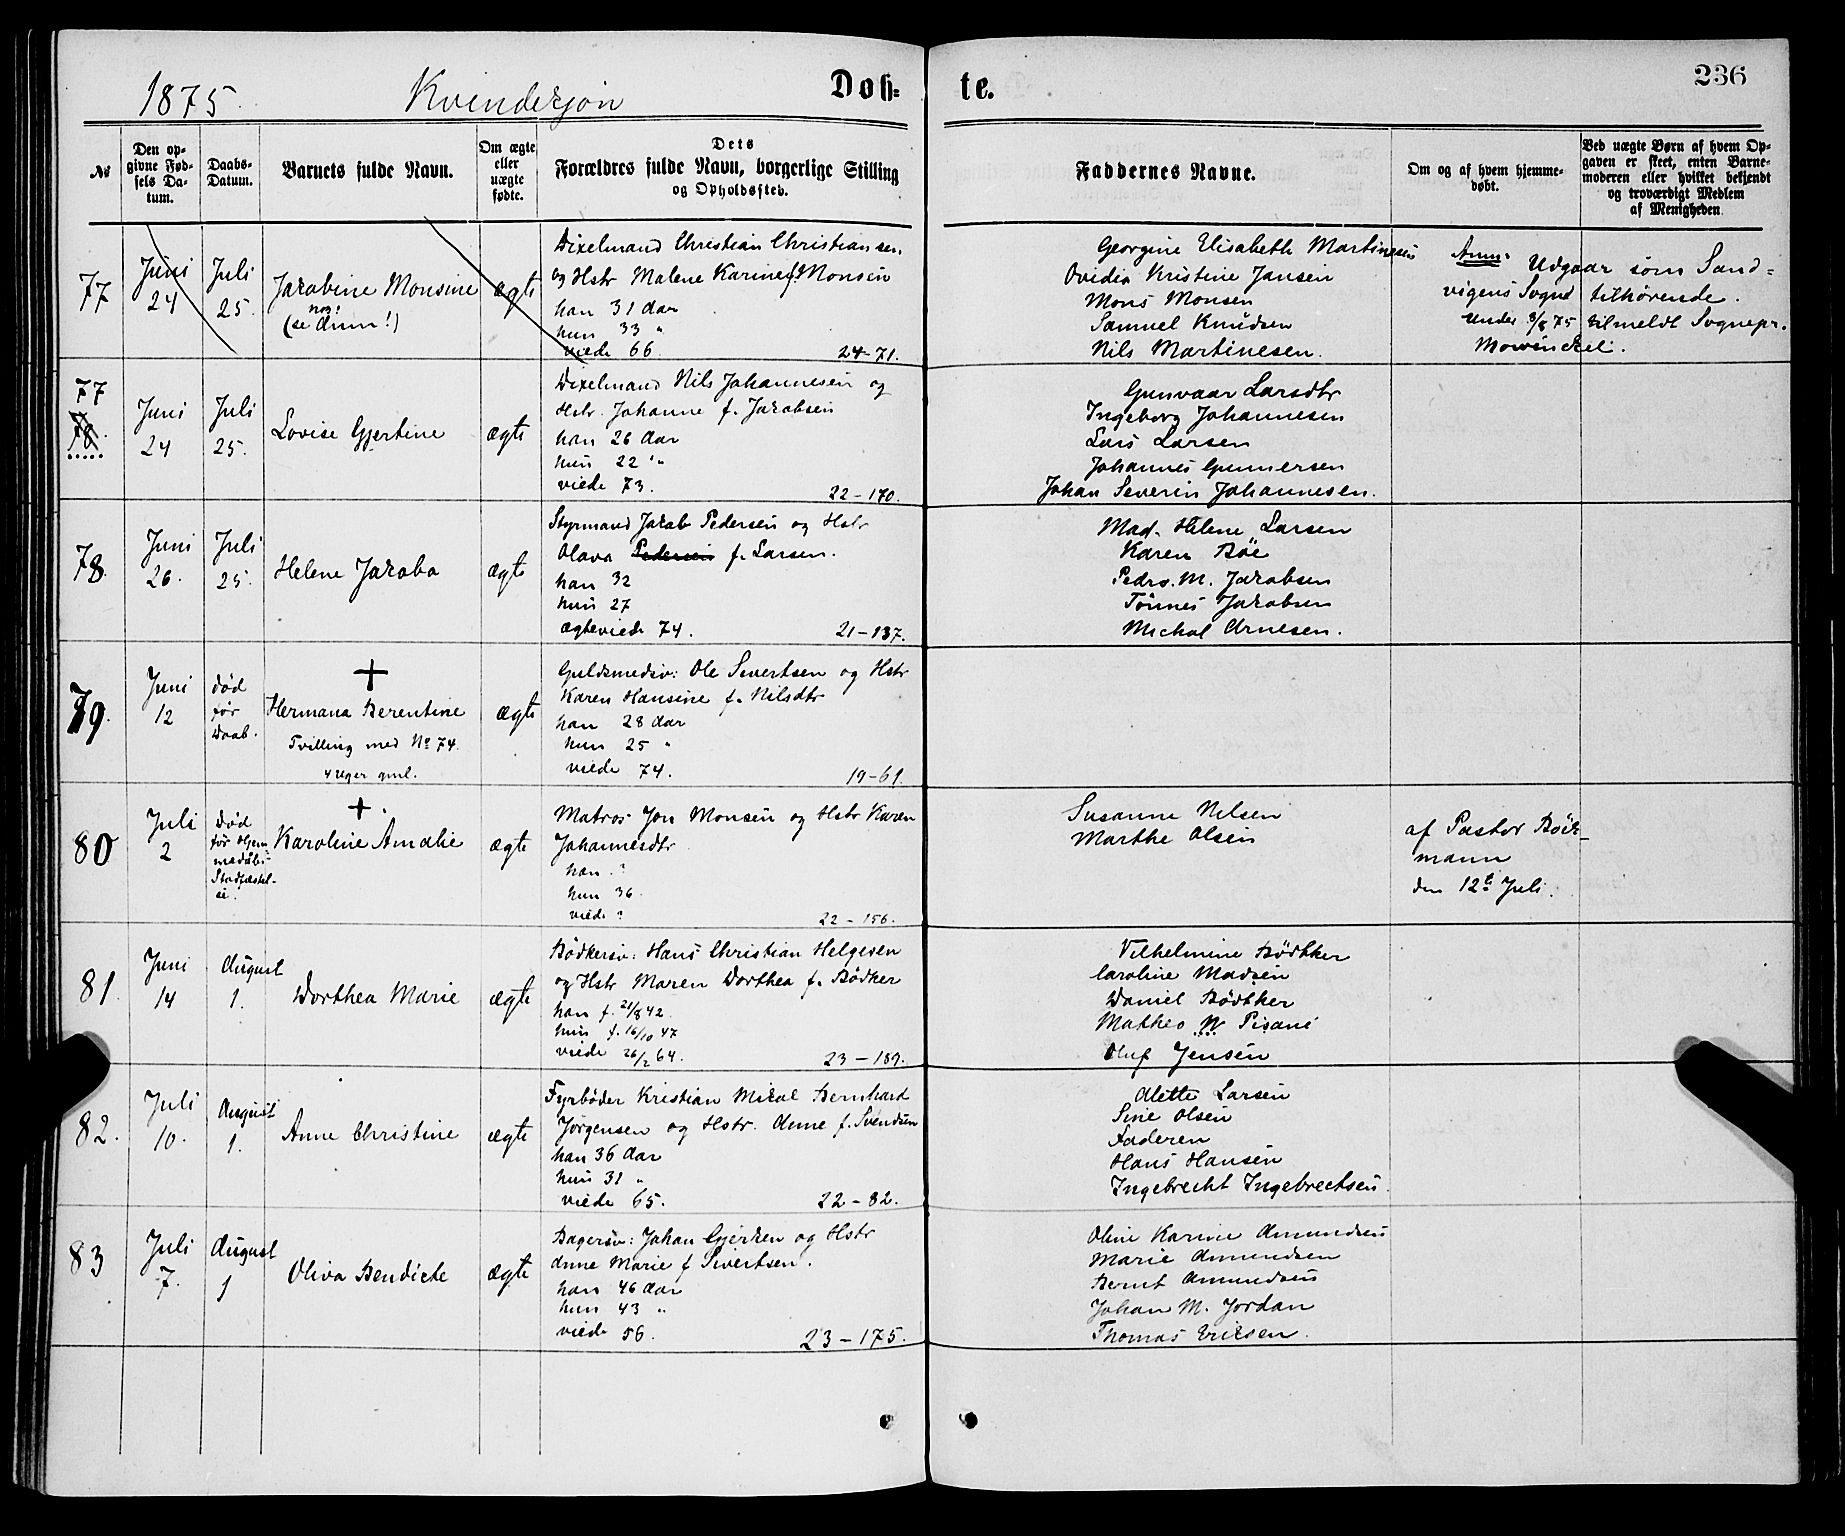 1875.
Kvindekjøn
Døb=
te.
236
No
Den op-
givne Fød-
sels Da-
tum.
Daabs-
Datum.
Barnets fulde Navn.
Om ægte
eller
uægte
fødte.
Dets
Forældres fulde Navn, borgerlige Stilling
og Opholdssted.
Faddernes Navne.
Om og af hvem hjemme-
døbt.
Ved uægte Børn af hvem Op-
gaven er skeet, enten Barne-
moderen eller hvilket bekjendt
og troværdigt Medlem
af Menigheden.
77
Juni
24
Juli
25.
Jacobine Monsine
(se Anm!)
ægte
Dixelmand Christian Christiansen.
og Hstr Malene Karine f. Monsen
han 31 Aar
hun 33 "
viede 66.
24-71.
Georgine Elisabeth Martinesen
Ovidia Kristine Jansen
Mons Monsen
Samuel Knudsen
Nils Martinesen.
Anm: Udgaar som Sand=
vigens Sogn tilhørende.
Under 3/8 75 tilmeldt Sognepr.
Mowinckel.
77
78.
Juni
24
Juli
25.
Lovise Gjertine
ægte
Dixelmand Nils Johannesen og
Hstr. Johanne f. Jacobsen
han 26 Aar
hun 22 "
viede 73.
22-170.
Gunvaar Larsdtr
Ingeborg Johannesen
Lars Larsen
Johannes Gunnersen
Johan Severin Johannesen.
78.
Juni
26.
Juli
25.
Helene Jacoba
ægte
Styrmand Jacob Pedersen og Hstr
Olava Pedersen f. Larsen.
han 32
hun 27
ægteviede 74.
21-137.
Mad. Helene Larsen
Karen Bøe
Pedro. M. Jacobsen
Tönnes Jacobsen
Michal Arnesen.
79.
Juni
12
død
før
Daab.
+
Hermana Berentine
Tvilling med No 74.
4 Uger gml.
ægte
Guldsmedsv: Ole Sivertsen og Hstr
Karen Hansine f. Nilsdtr
han 28 Aar
hun 25 "
viede 74.
19-61.
80
Juli
2
Død
før Hjem
medaabs-
Stadfæstel-
se.
+
Karoline Amalie
ægte
Matros Jon Monsen og Hstr Karen
Johannesdtr
han ?
hun 36.
viede ?
22-156.
Susanne Nilsen
Marthe Olsen
af Pastor Böck-
mann
den 12te Juli.
81.
Juni
14
August
1.
Dorthea Marie
ægte
Bødkersv: Hans Christian Helgesen
og Hstr Maren Dorthea f. Bødker
han f. 21/8 42.
hun f. 16/10 47
viede 26/2 64.
23-189.
Vilhelmine Bödtker
Caroline Madsen
Daniel Bödtker
Matheo W Pisani
Oluf Jensen
82.
Juli
10.
August
1.
Anne Christine
ægte
Fyrbøder Kristian Mikal Bernhard
Jørgensen og Hstr. Anne f. Svendsen
han 36 Aar
hun 31 "
viede 65.
22-82.
Alette Larsen
Sine Olsen
Faderen
Hans Hansen
Ingebrecht Ingebrechtsen.
83
Juli
7.
August
1
Oliva Bendicte
ægte
Bagersv: Johan Gjerken og Hstr
Anne Marie f Sivertsen.
han 46 Aar
hun 43 "
viede 56.
23-175.
Oline Karine Amundsen
Marie Amundsen
Bernt Amundsen
Johan M. Jordan
Thomas Eriksen.